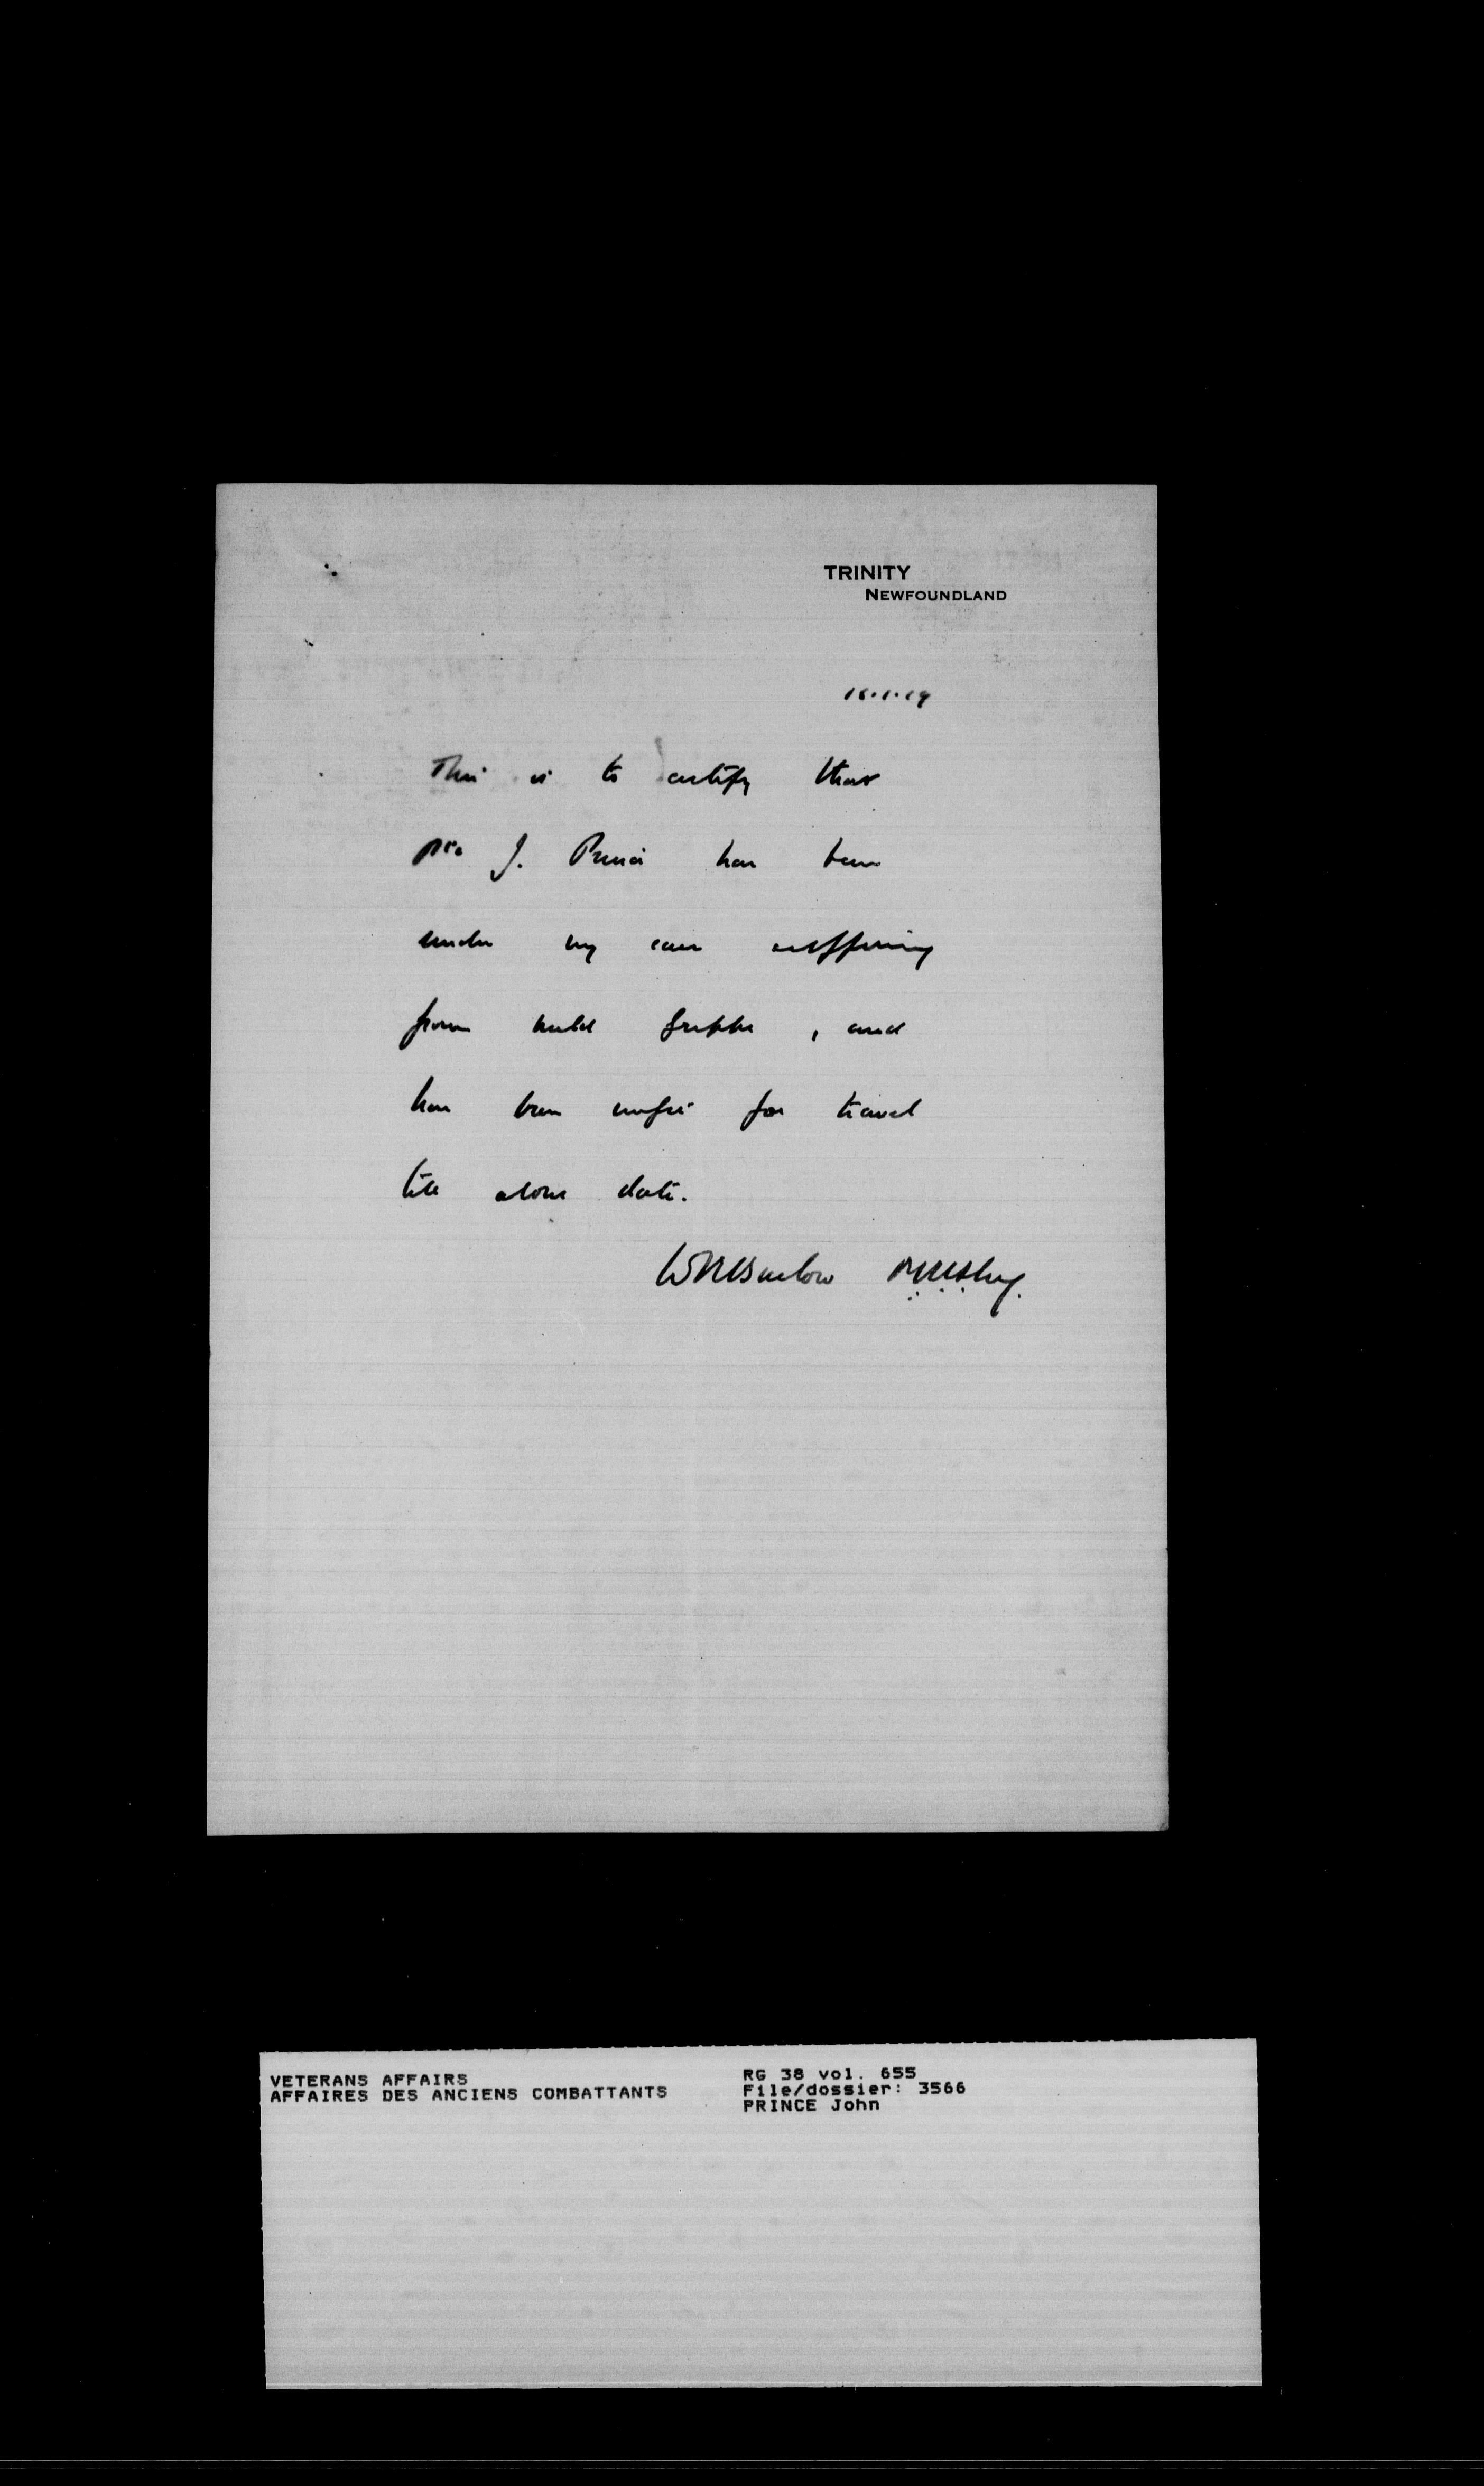 TRINITY
NEWFOUNDLAND
This is to certify that
Pte J. Prince has been
under my care suffering
from mild Grippe, and
has been unfit for travel
till above date.
VETERANS AFFAIRS
AFFAIRES DES ANCIENS COMBATTANTS
RG 38 vol. 655
File/dossier: 3566
PRINCE John